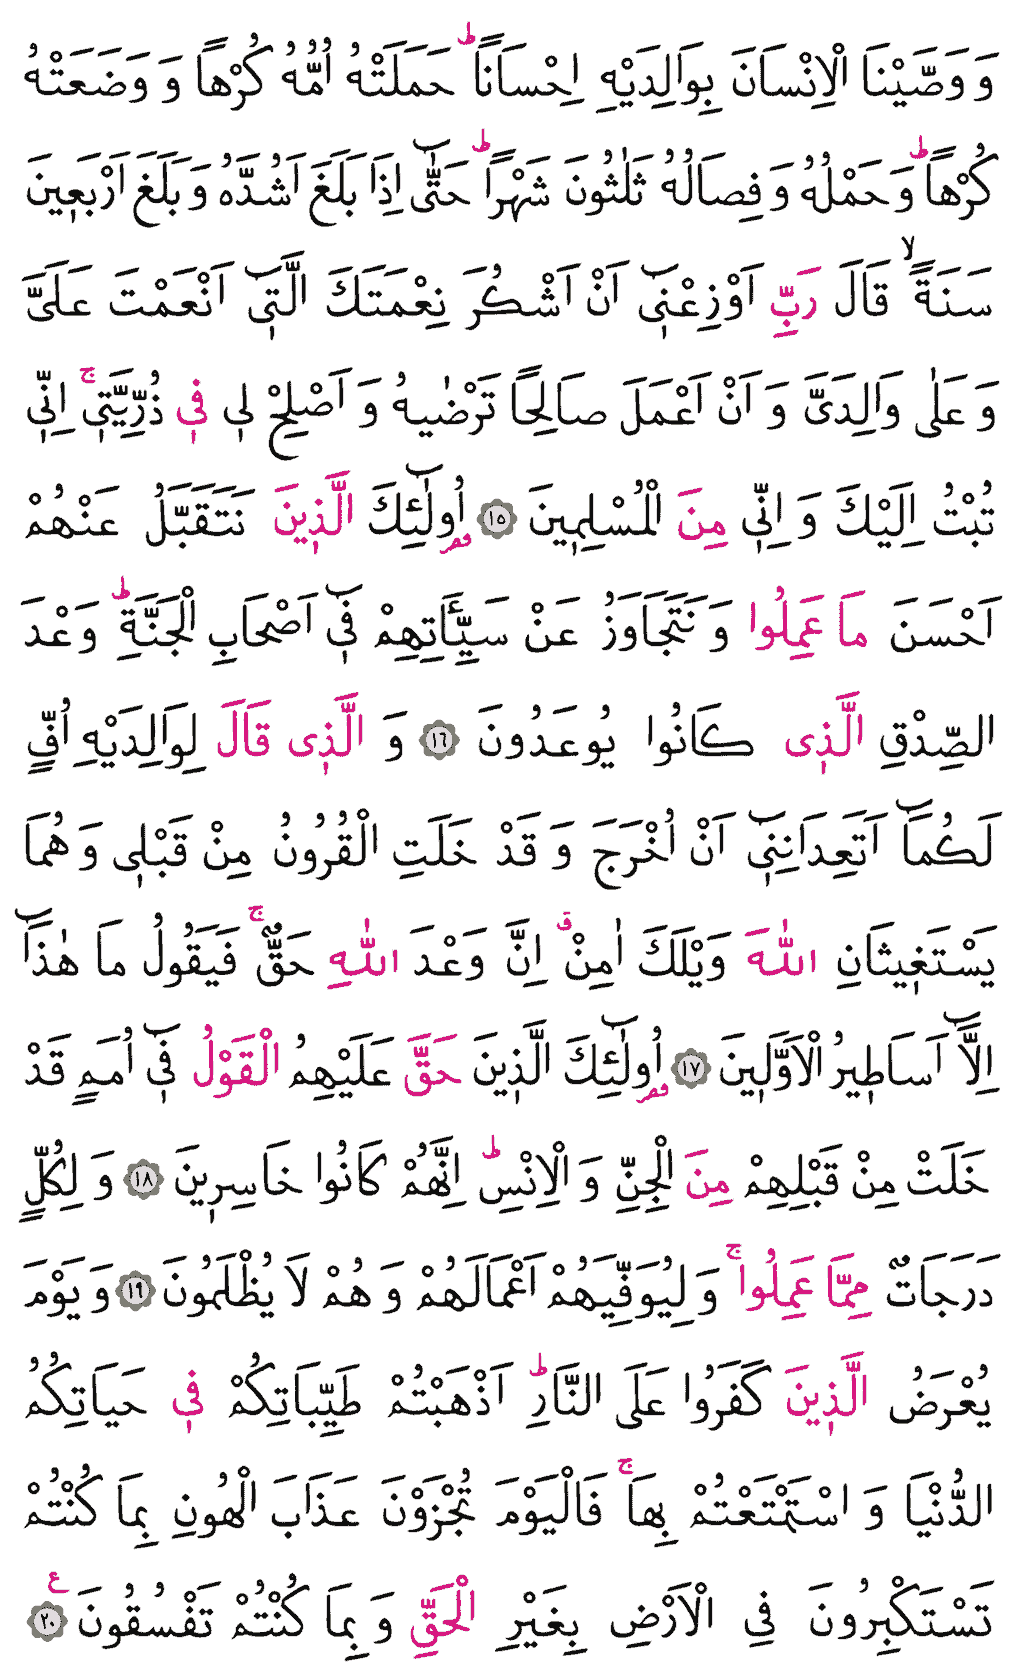 وَ وَصَّيْنَا الْاِنْسَانَ بِوَالِدَيْهِ اِحْسَانًاؕ حَمَلَتْهُ اُمُّهُ كُرْهًا وَ وَضَعَتْهُ
كُرْهًاؕ وَ حَمْلُهُ وَ فِصَالُهُ ثَلٰثُونَ شَهْرًاؕ حَتّٰٓى اِذَا بَلَغَ اَشُدَّهُ وَ بَلَغَ اَرْبَعِينَ
سَنَةًۙ قَالَ رَبِّ اَوْزِعْنِىٓ اَنْ اَشْكُرَ نِعْمَتَكَ الَّتِىٓ اَنْعَمْتَ عَلَىَّ
وَ عَلٰى وَالِدَىَّ وَ اَنْ اَعْمَلَ صَالِحًا تَرْضٰيهُ وَ اَصْلِحْ لِى فِى ذُرِّيَّتِىۚ اِنِّى
تُبْتُ اِلَيْكَ وَ اِنِّى مِنَ الْمُسْلِمِينَ ﴿١٥﴾ اُو۬لٰٓئِكَ الَّذِينَ نَتَقَبَّلُ عَنْهُمْ
اَحْسَنَ مَا عَمِلُوا وَ نَتَجَاوَزُ عَنْ سَيِّـَٔاتِهِمْ فِىٓ اَصْحَابِ الْجَنَّةِؕ وَعْدَ
الصِّدْقِ الَّذِى كَانُوا يُوعَدُونَ ﴿١٦﴾ وَ الَّذِى قَالَ لِوَالِدَيْهِ اُفٍّ
لَكُمَٓا اَتَعِدَانِنِىٓ اَنْ اُخْرَجَ وَ قَدْ خَلَتِ الْقُرُونُ مِنْ قَبْلِى وَ هُمَا
يَسْتَغِيثَانِ اللّٰهَ وَيْلَكَ اٰمِنْۗ اِنَّ وَعْدَ اللّٰهِ حَقٌّۚ فَيَقُولُ مَا هٰذَٓا
اِلَّٓا اَسَاطِيرُ الْاَوَّلِينَ ﴿١٧﴾ اُو۬لٰٓئِكَ الَّذِينَ حَقَّ عَلَيْهِمُ الْقَوْلُ فِىٓ اُمَمٍ قَدْ
خَلَتْ مِنْ قَبْلِهِمْ مِنَ الْجِنِّ وَ الْاِنْسِؕ اِنَّهُمْ كَانُوا خَاسِرِينَ ﴿١٨﴾ وَ لِكُلٍّ
دَرَجَاتٌ مِمَّا عَمِلُواۚ وَ لِيُوَفِّيَهُمْ اَعْمَالَهُمْ وَ هُمْ لَا يُظْلَمُونَ ﴿١٩﴾ وَ يَوْمَ
يُعْرَضُ الَّذِينَ كَفَرُوا عَلَى النَّارِؕ اَذْهَبْتُمْ طَيِّبَاتِكُمْ فِى حَيَاتِكُمُ
الدُّنْيَا وَ اسْتَمْتَعْتُمْ بِهَاۚ فَالْيَوْمَ تُجْزَوْنَ عَذَابَ الْهُونِ بِمَا كُنْتُمْ
تَسْتَكْبِرُونَ فِى الْاَرْضِ بِغَيْرِ الْحَقِّ وَ بِمَا كُنْتُمْ تَفْسُقُونَ ﴿٢٠﴾ ع